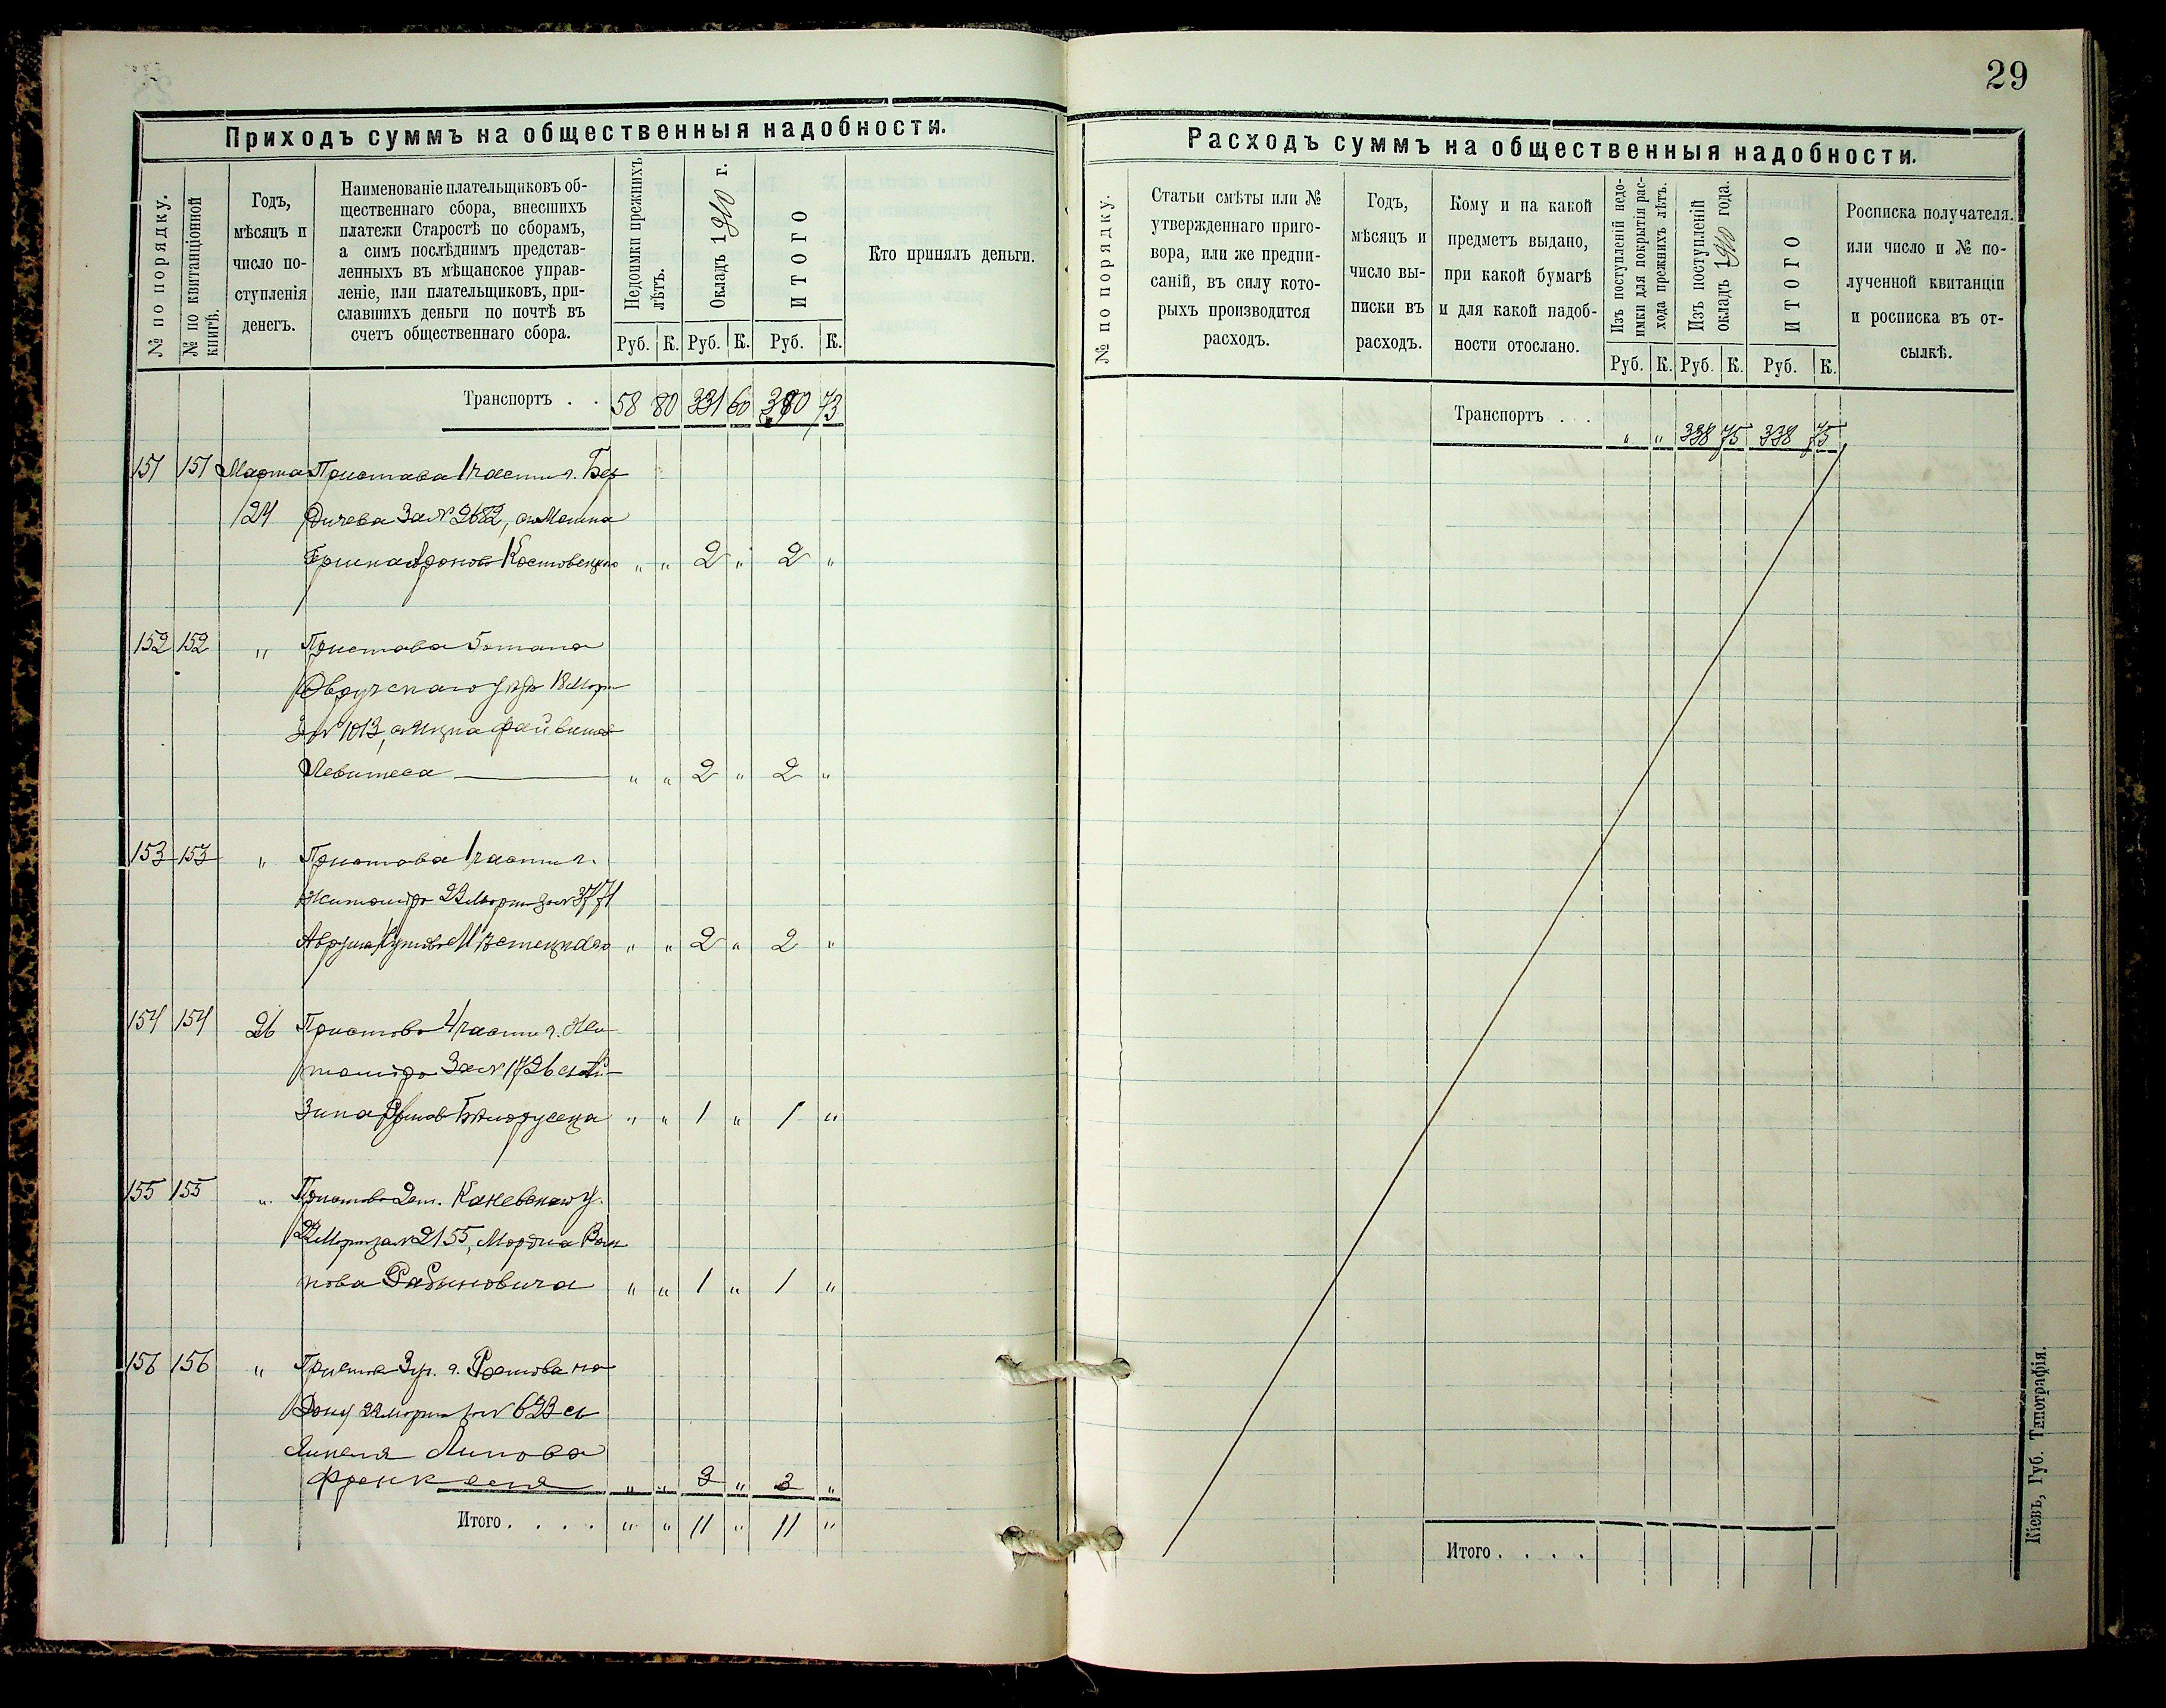 29
Приходъ суммъ на общественныя надобности.
№ по порядку.
№ по квитанціонной книгѣ.
Годъ,
мѣсяцъ и
число по-
ступленія
денегъ.
Наименованіе плательщиковъ об-
щественнаго сбора, внесшихъ
платежи Старостѣ по сборамъ,
а симъ послѣднимъ представ-
ленныхъ въ мѣщанское управ-
леніе, или плательщиковъ, при-
славшихъ деньги по почтѣ въ
счетъ общественнаго сбора.
Недоимки прежнихъ
лѣтъ.
Окладъ 1910 г.
ИТОГО
Кто принялъ деньги.
Руб. К. Руб. К. Руб. К.
Транспортъ . . 58 80 331 60 390 73
151 151 Марта Пристава 1 части г. Бер
24 дичева За № 2682,
Костовецкаго " " 2 " 2 "
152 152 " Пристава 5 стана
Овручскаго 18 Мар
За № 1013,
Левитеса " " 2 " 2 "
153 153 " Пристава 1 части г.
Житоміра 22 Марта за № 3771
" " 2 " 2 "
154 154 26 Пристава 4 части г. Жи
томіра За № 1726
" " 1 " 1 "
155 155 " Пристава 2 ст. Каневскаго у.
22 Марта за № 2155, Мордка
кова Рабиновича " " 1 " 1 "
156 156 " Пристава 3 уч. г. Ростова на
Дону 22 марта за № 623 съ
Липова
Френкеля " " 3 " 3 "
Итого . . . . " " 11 " 11 "
Расходъ суммъ на общественныя надобности.
№ по порядку.
Статьи смѣты или №
утвержденнаго приго-
вора, или же предпи-
саній, въ силу кото-
рыхъ производится
расходъ.
Годъ,
мѣсяцъ и
число вы-
писки въ
расходъ.
Кому и на какой
предметъ выдано,
при какой бумагѣ
и для какой надоб-
ности отослано.
Изъ поступленій недо-
имки для покрытія рас-
хода прежнихъ лѣтъ.
Изъ поступленій
окладъ 1910 года.
ИТОГО
Росписка получателя.
или число и № по-
лученной квитанціи
и росписка въ от-
сылкѣ.
Руб. К. Руб. К. Руб. К.
Транспортъ . . . " " 338 75 338 75
Итого . . . .
Кіевъ, Губ. Типографія.